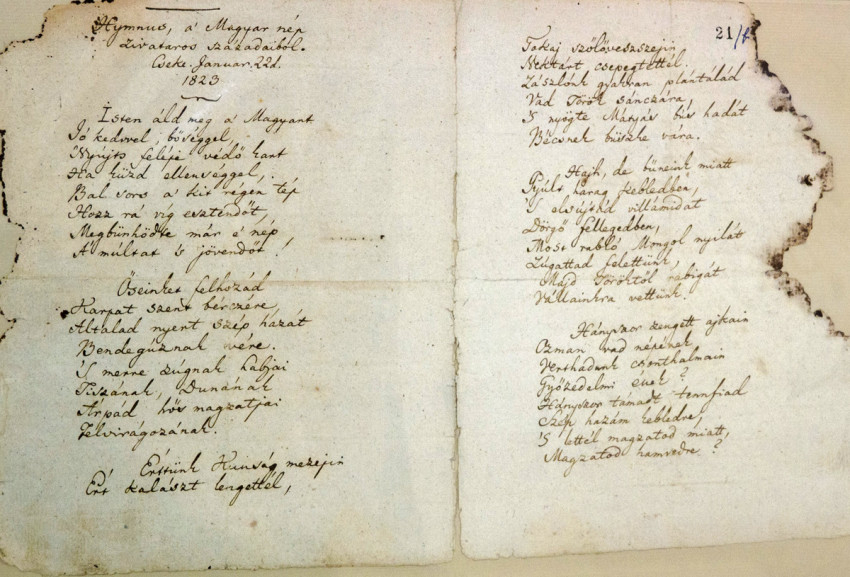 Hymnus, a' Magyar nép
zivataros századaiból.
Cseke. Januar. 22d.
1823
Isten áldd meg a' Magyart
Jó kedvvel, bőséggel,
Nyújts feléje védő kart
Ha küzd ellenséggel,
Bal sors a' kit régen tép
Hozz rá víg esztendőt,
Megbünhödte már e' nép
A' múltat 's jövendőt!
Őseinket felhozád
Karpat szent bérczére,
Általad nyert szép hazát
Bendegúznak vére.
'S merre zúgnak habjai
Tiszának, Dunának
Árpád hős magzatjai
Felvirágozának.
Értünk Kunság mezejin
Ért kalászt lengettél,
21/
Tokaj szőlővesszejin
Nektárt csepegtettél.
Zászlónk gyakran plántálád
Vad Török sánczára,
'S nyögte Mátyás bús hadát
Bécsnek büszke vára.
Hajh, de bűneink miatt
Gyúlt harag kebledben,
'S elsújtád villámidat
Dörgő fellegedben,
Most rabló Mongol nyilát
Zúgattad felettünk,
Majd Töröktől rabigát
Vállainkra vettünk.
Hányszor zengett ajkain
Ozman vad népének
Vert hadunk csonthalmain
Győzedelmi ének?
Hányszor támadt tennfiad
Szép hazám kebledre,
'S lettél magzatod miatt,
Magzatod hamvedre?